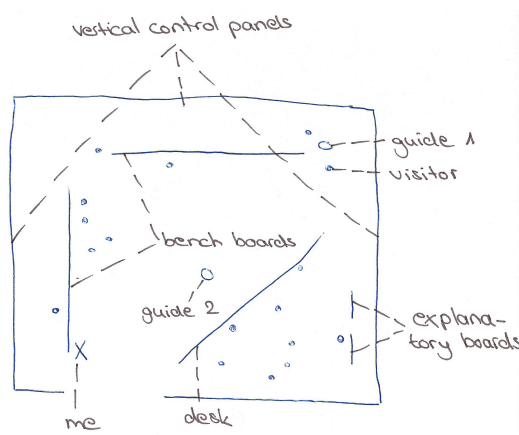 vertical control panels
guide 1
visitor
bench boards
guide 2
explana-
tory boards
me
desk